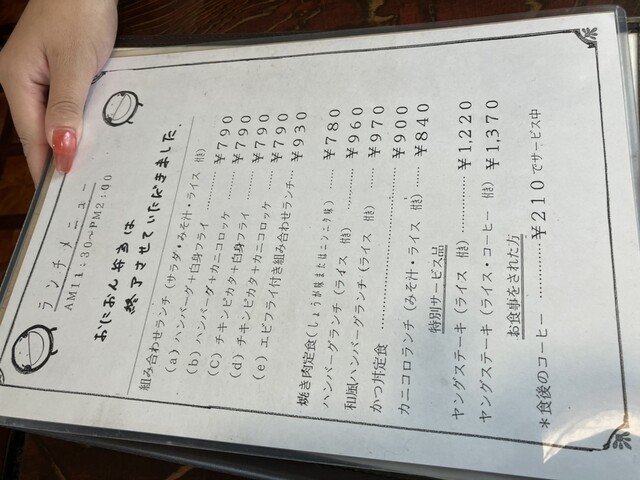 ランチメニュー
AM11:30~PM2:00
おにおん弁当は
終了させていただきました.
組み合わせランチ(サラダ・みそ汁・ライス 付き)
(a)ハンバーグ+白身フライ ………¥790
(b)ハンバーグ+カニコロッケ ………¥790
(C)チキンピカタ+白身フライ ………¥790
(d)チキンピカタ+カニコロッケ ………¥790
(e)エビフライ付き組み合わせランチ…¥930
焼き肉定食(しょうが味またはニンニク味)
ハンバーグランチ(ライス 付き) ………¥780
和風ハンバーグランチ(ライス 付き) ………¥960
かつ丼定食 ………………………¥970
カニコロランチ(みそ汁・ライス 付き) ………¥900
特別サービス品 ¥840
ヤングステーキ(ライス 付き) ………………¥1,220
ヤングステーキ(ライス・コーヒー 付き) ……¥1,370
お食事をされた方
*食後のコーヒー …………¥210でサービス中